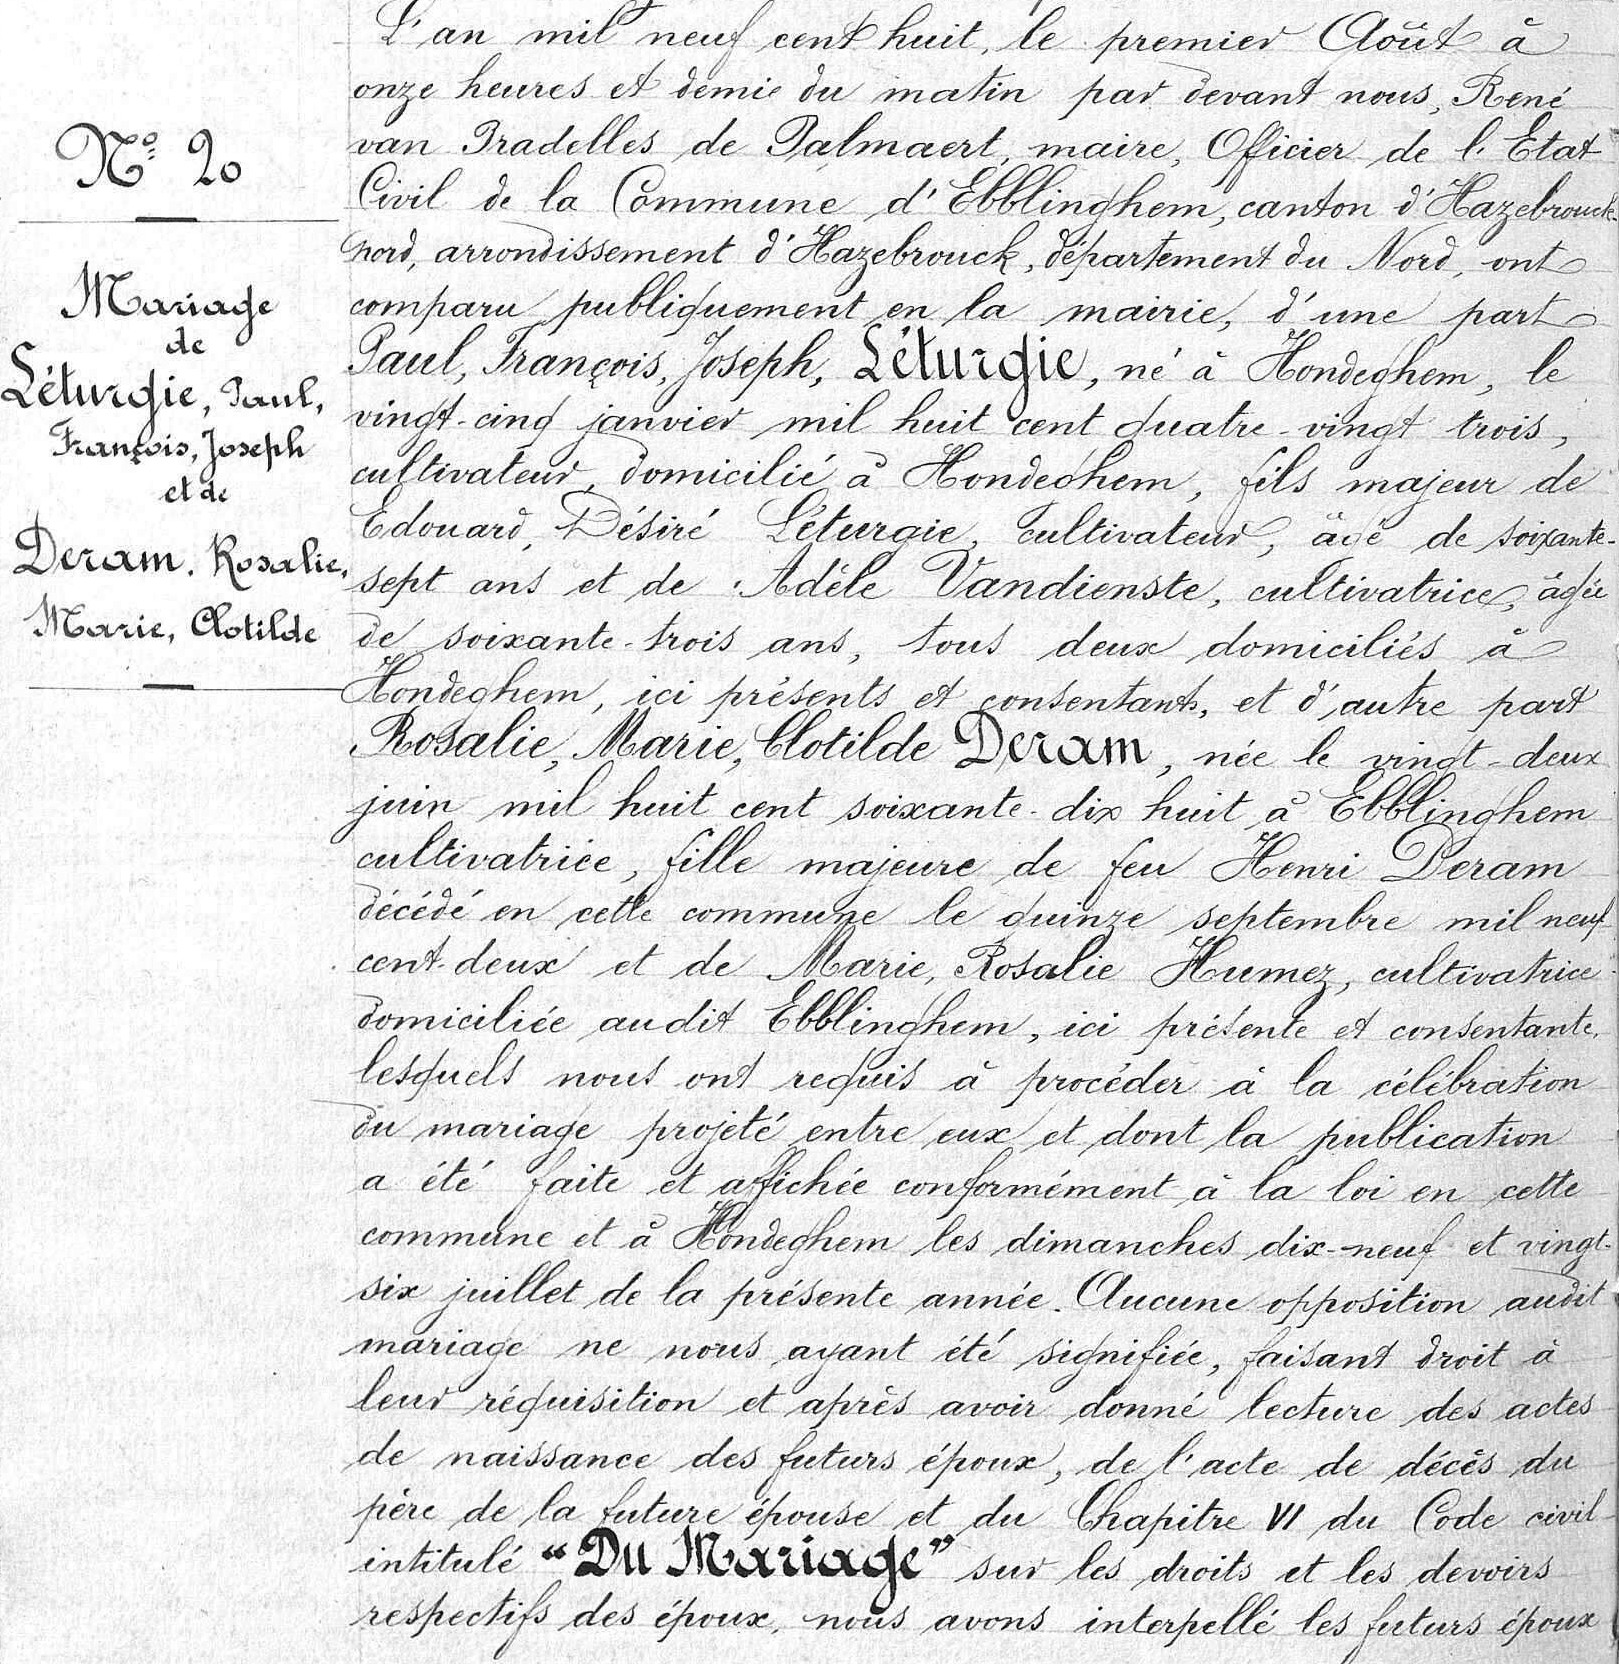 L'an mil neuf cent huit, le premier Août à
onze heures et demie du matin par devant nous, René
van Pradelles de Palmaert, maire, Officier de l'Etat
Civil de la Commune d'Ebblinghem, canton d'Hazebrouck-
nord, arrondissement d'Hazebrouck, département du Nord, ont
comparu publiquement en la mairie, d'une part
Paul, François, Joseph, Léturgie, né à Hondeghem, le
vingt-cinq janvier mil huit cent quatre-vingt trois,
cultivateur, domicilié à Hondeghem, fils majeur de
Edouard, Désiré Léturgie, cultivateur, âgé de soixante-
sept ans et de Adèle Vandienste, cultivatrice, âgée
de soixante-trois ans, tous deux domiciliés à
Hondeghem, ici présents et consentants, et d'autre part
Rosalie, Marie, Clotilde Deram, née le vingt-deux
juin mil huit cent soixante-dix huit à Ebblinghem
cultivatrice, fille majeure de feu Henri Deram
décédé en cette commune le quinze septembre mil neuf
cent-deux et de Marie, Rosalie Humez, cultivatrice
domiciliée audit Ebblinghem, ici présente et consentante,
lesquels nous ont requis à procéder à la célébration
du mariage projeté entre eux et dont la publication
a été faite et affichée conformément à la loi en cette
commune et à Hondeghem les dimanches dix-neuf et vingt-
six juillet de la présente année. Aucune opposition audit
mariage ne nous ayant été signifiée, faisant droit à
leur réquisition et après avoir donné lecture des actes
de naissance des futurs époux, de l'acte de décès du
père de la future épouse et du Chapitre VI du Code civil
intitulé "Du Mariage" sur les droits et les devoirs
respectifs des époux, nous avons interpellé les futurs époux
No 20
Mariage
de
Léturgie, Paul,
François, Joseph
et de
Deram, Rosalie,
Marie, Clotilde